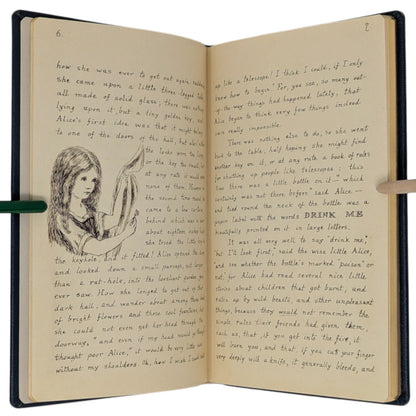 6.
how she was ever to get out again: suddenly
she came upon a little three-legged table,
all made of solid glass; there was nothing
lying upon it, but a tiny golden key, and
Alice's first idea was that it might belong
to one of the doors of the hall, but alas! either
the locks were too large,
or the key too small, but
at any rate it would open
none of them. However, on
the second time round she
came to a low curtain,
behind which was a door
about eighteen inches high:
she tried the little key in
the keyhole, and it fitted! Alice opened the door,
and looked down a small passage, not larger
than a rat-hole, into the loveliest garden you
ever saw. How she longed to get out of that
dark hall, and wander about among those beds
of bright flowers and those cool fountains, but
she could not even get her head through the
doorway, "and even if my head would go through,"
thought poor Alice, "it would be very little use
without my shoulders. Oh, how I wish I could shut
7.
up like a telescope! I think I could, if I only
knew how to begin." For, you see, so many out-
of-the-way things had happened lately, that
Alice began to think very few things indeed
were really impossible.
There was nothing else to do, so she went
back to the table, half hoping she might find
another key on it, or at any rate a book of rules
for shutting up people like telescopes: this
time there was a little bottle on it — "which
certainly was not there before" said Alice —
and tied round the neck of the bottle was a
paper label with the words DRINK ME
beautifully printed on it in large letters.
It was all very well to say "drink me,"
but I'll look first," said the wise little Alice,
"and see whether the bottle's marked "poison" or
not," for Alice had read several nice little
stories about children that got burnt, and
eaten up by wild beasts, and other unpleasant
things, because they would not remember the
simple rules their friends had given them,
such as, that, if you get into the fire, it
will burn you, and that, if you cut your finger
very deeply with a knife, it generally bleeds, and